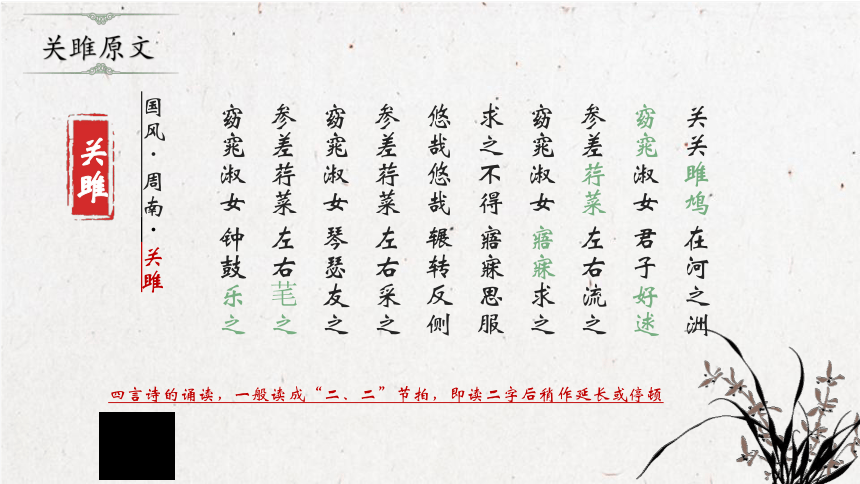 关雎原文
关关雎鸠 在河之洲
窈窕淑女 君子好逑
参差荇菜 左右流之
窈窕淑女 寤寐求之
求之不得 寤寐思服
悠哉悠哉 辗转反侧
参差荇菜 左右采之
窈窕淑女 琴瑟友之
参差荇菜 左右芼之
窈窕淑女 钟鼓乐之
国风·周南·关雎
关雎
四言诗的诵读，一般读成“二、二”节拍，即读二字后稍作延长或停顿